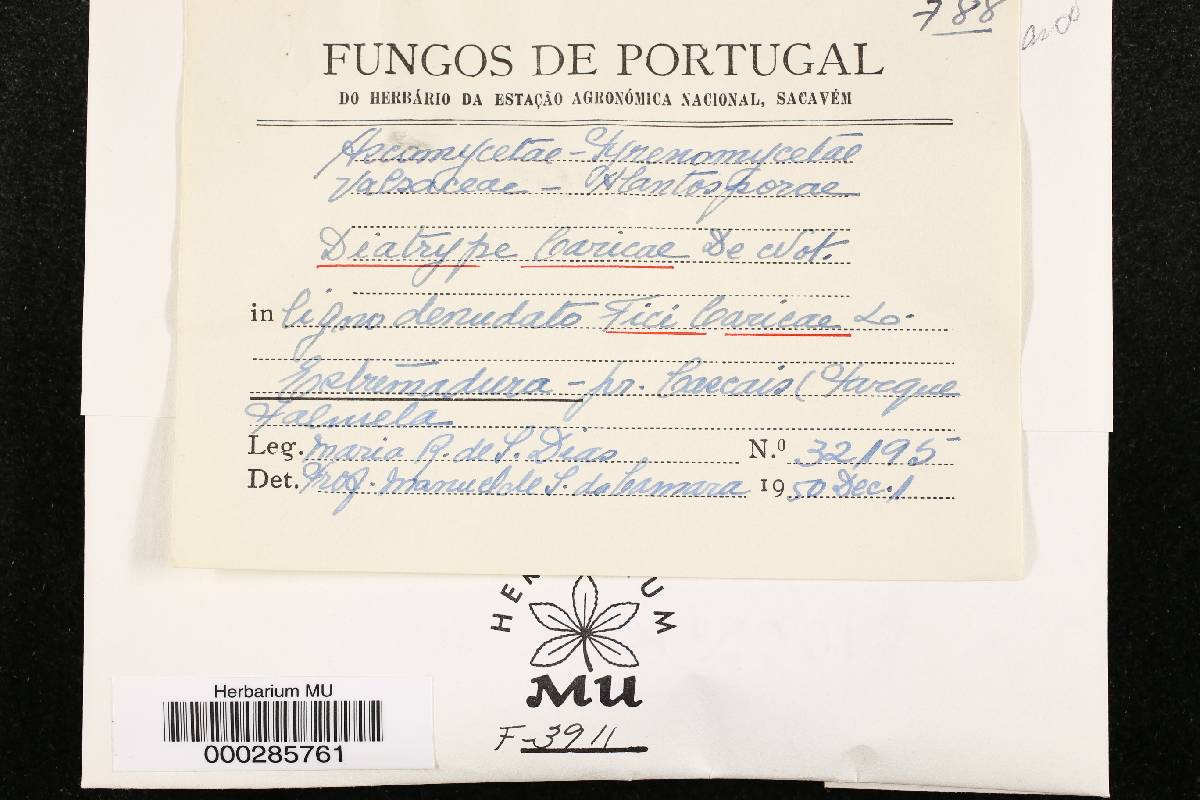 788
FUNGOS DE PORTUGAL
DO HERBÁRIO DA ESTAÇÃO AGRONÓMICA NACIONAL, SACAVÉM
Ascomycetae - Pyrenomycetae
Valsaceae - Allantosporae
Diatrype Caricae De Not.
in ligno denudato Fici Caricae L.
Extremadura - pr. Cascais (Parque
Palmela
Leg. Maria R. de S. Dias N.º 32195
Det. Prof. Manuel de S. da Camara 1950 Dec. 1
HERBARIUM
MU
F-3911
Herbarium MU
000285761